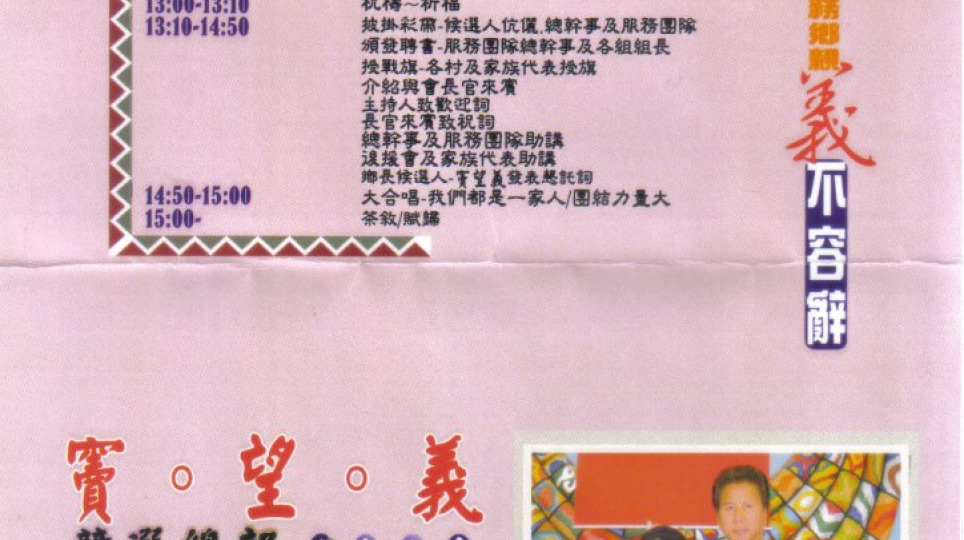 13:00-13:10 祝禱~祈福
13:10-14:50 披掛彩帶-候選人伉儷,總幹事及服務團隊
頒發聘書-服務團隊總幹事及各組組長
授戰旗-各村及家族代表授旗
介紹與會長官來賓
主持人致歡迎詞
長官來賓致祝詞
總幹事及服務團隊助講
後援會及家族代表助講
鄉長候選人-竇望義發表懇託詞
14:50-15:00 大合唱-我們都是一家人/團結力量大
15:00- 茶敘/賦歸
務鄉親
義不容辭
竇。望。義